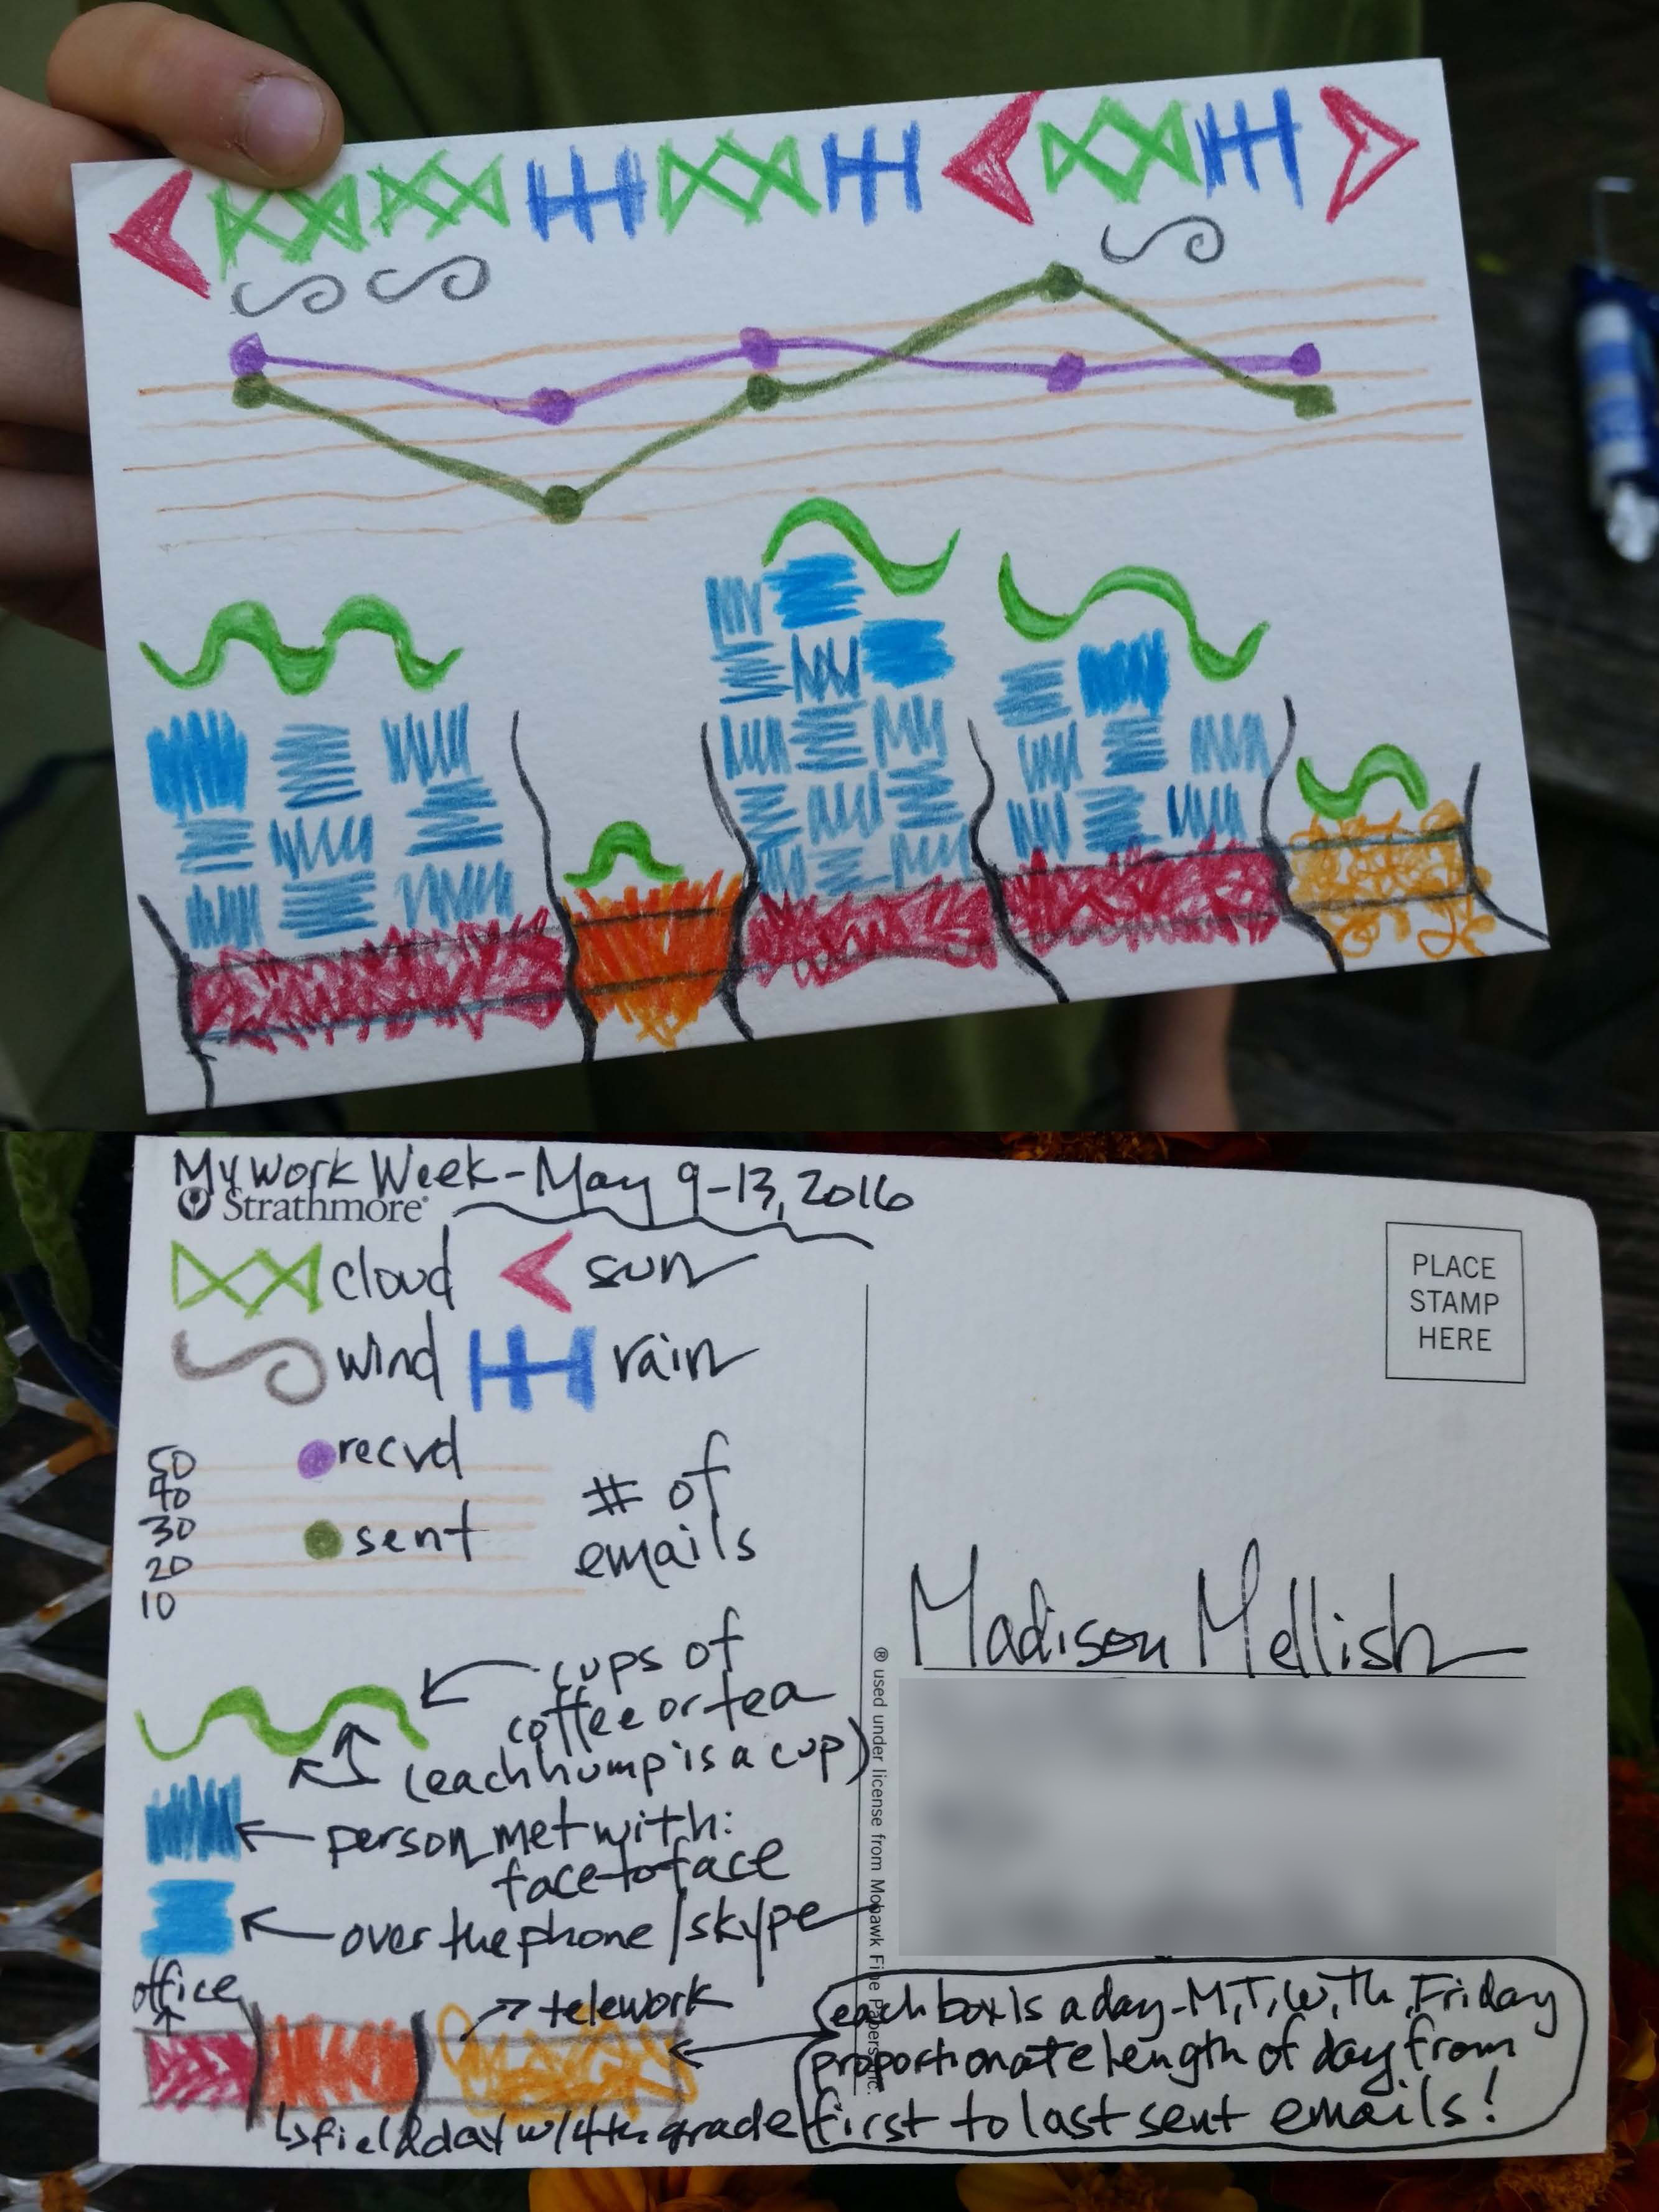 My Work Week - May 9-13, 2016
Strathmore®
cloud
sun
wind
rain
50
40
30
20
10
recvd
sent
# of
emails
cups of
coffee or tea
(each hump is a cup)
person met with:
face to face
over the phone/skype
office
telework
field day w/ 4th grade
each box is a day - M, T, W, Th, Friday
proportionate length of day from
first to last sent emails!
PLACE
STAMP
HERE
Madison Mellish
® used under license from Mohawk Fine Papers Inc.